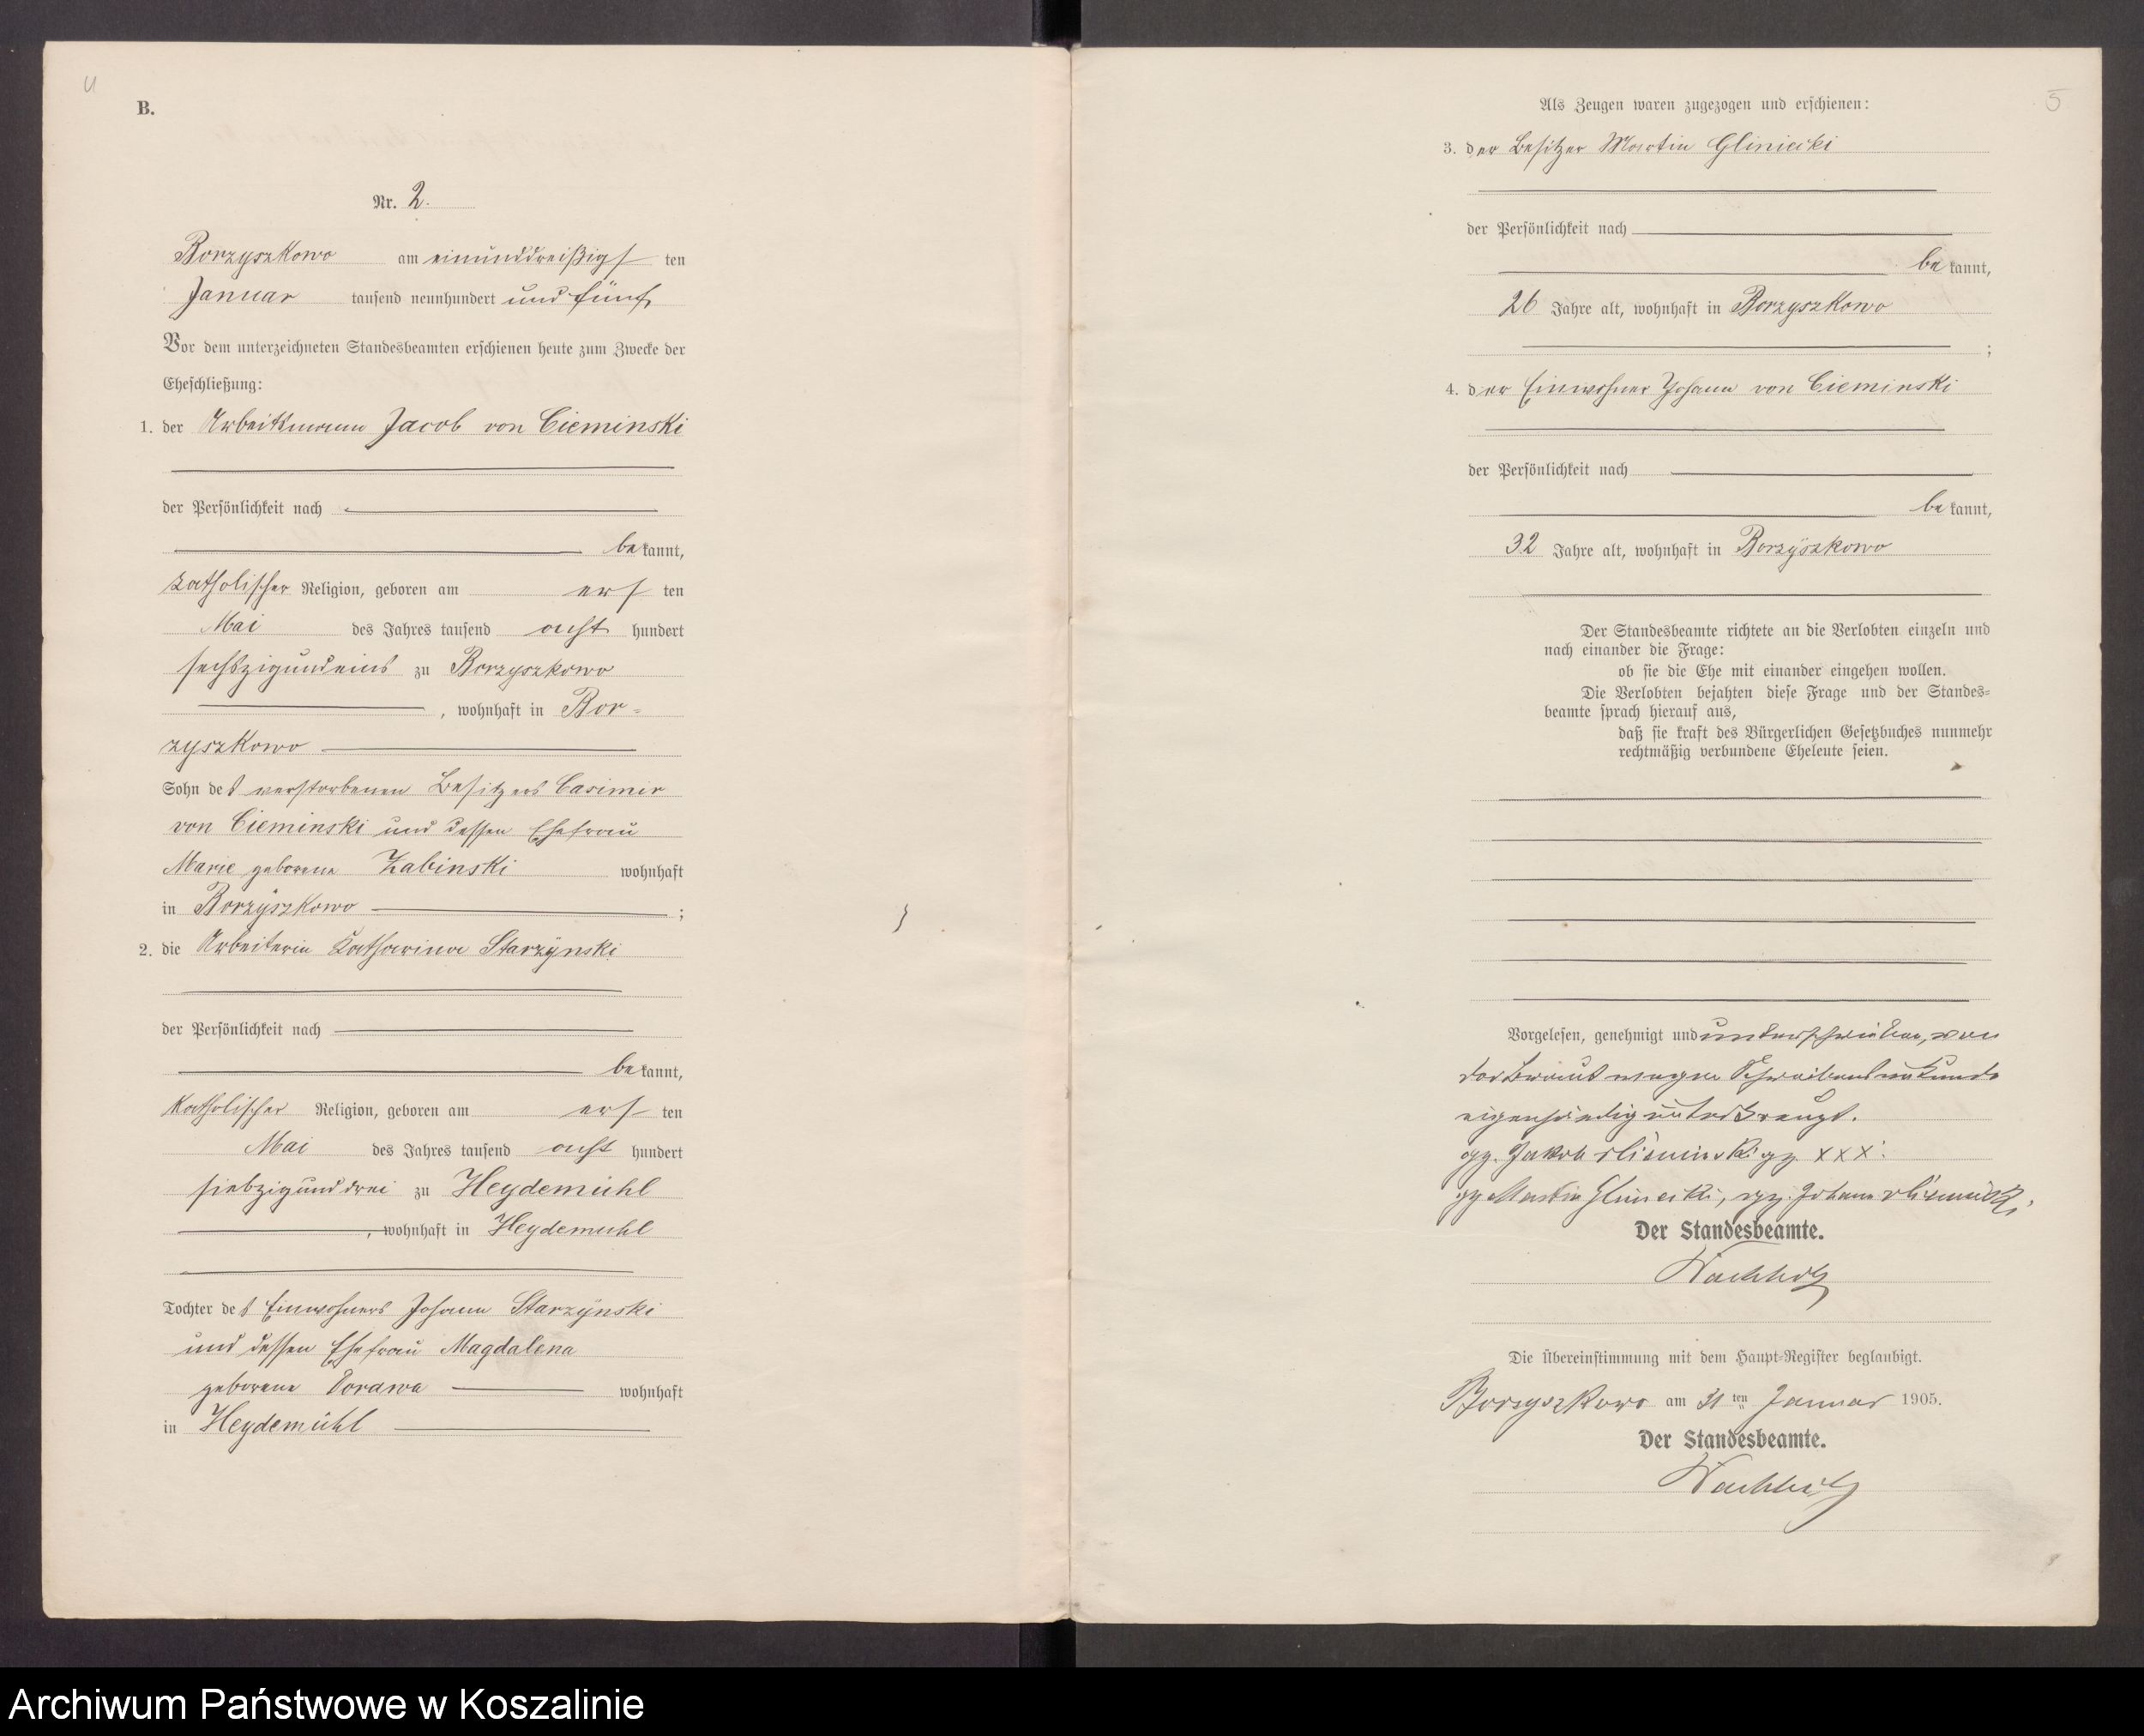 4
B.
Nr. 2.
Borzyszkowo am einunddreißigsten
Januar tausend neunhundert und fünf
Vor dem unterzeichneten Standesbeamten erschienen heute zum Zwecke der
Eheschließung:
1. der Arbeitsmann Jacob von Cieminski
der Persönlichkeit nach
bekannt,
katholischer Religion, geboren am ersten
Mai des Jahres tausend acht hundert
sechszigundeins zu Borzyszkowo
, wohnhaft in Bor=
zyszkowo
Sohn des verstorbenen Besitzers Casimir
von Cieminski und dessen Ehefrau
Marie geborene Zabinski wohnhaft
in Borzyszkowo ;
2. die Arbeiterin Katharina Starzynski
der Persönlichkeit nach
bekannt,
katholischer Religion, geboren am ersten
Mai des Jahres tausend acht hundert
siebzigunddrei zu Heydemühl
, wohnhaft in Heydemühl
Tochter des Einwohners Johann Starzynski
und dessen Ehefrau Magdalena
geborene wohnhaft
in Heydemühl
5
Als Zeugen waren zugezogen und erschienen:
3. der Besitzer Martin Gliniecki
der Persönlichkeit nach
bekannt,
26 Jahre alt, wohnhaft in Borzyszkowo
;
4. der Einwohner Johann von Cieminski
der Persönlichkeit nach
bekannt,
32 Jahre alt, wohnhaft in Borzyszkowo
Der Standesbeamte richtete an die Verlobten einzeln und
nach einander die Frage:
ob sie die Ehe mit einander eingehen wollen.
Die Verlobten bejahten diese Frage und der Standes=
beamte sprach hierauf aus,
daß sie kraft des Bürgerlichen Gesetzbuches nunmehr
rechtmäßig verbundene Eheleute seien.
Vorgelesen, genehmigt und unterschrieben, von
der Braut wegen Schreibensunkunde
eigenhändig unterkreuzt.
gez. Jakob v Cieminski gez. XXX.
gez. Martin Gliniecki, gez. Johann v Cieminski.
Der Standesbeamte.
Wachholz
Die Übereinstimmung mit dem Haupt=Register beglaubigt.
Borzyszkowo am 31 ten Januar 1905.
Der Standesbeamte.
Wachholz
Archiwum Państwowe w Koszalinie